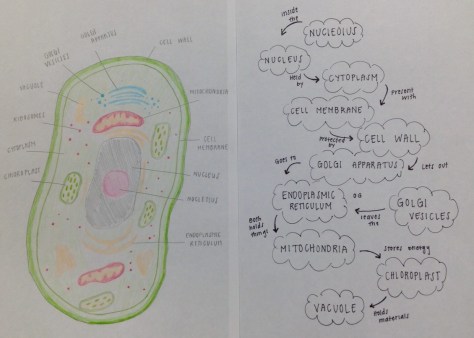 GOLGI
APPARATUS
CELL WALL
GOLGI
VESICLES
MITOCHONDRIA
VACUOLE
RIBOSOMES
CYTOPLASM
CHLOROPLAST
CELL
MEMBRANE
NUCLEUS
NUCLEOLUS
ENDOPLASMIC
RETICULUM
inside
the
NUCLEOLUS
NUCLEUS
Held
by
CYTOPLASM
Present
with
CELL MEMBRANE
Protected
by
CELL WALL
Goes to
GOLGI APPARATUS
Lets out
ENDOPLASMIC
RETICULUM
GOLGI
VESICLES
leaves
the
Both
holds
things
MITOCHONDRIA
stores energy
CHLOROPLAST
VACUOLE
Holds
materials